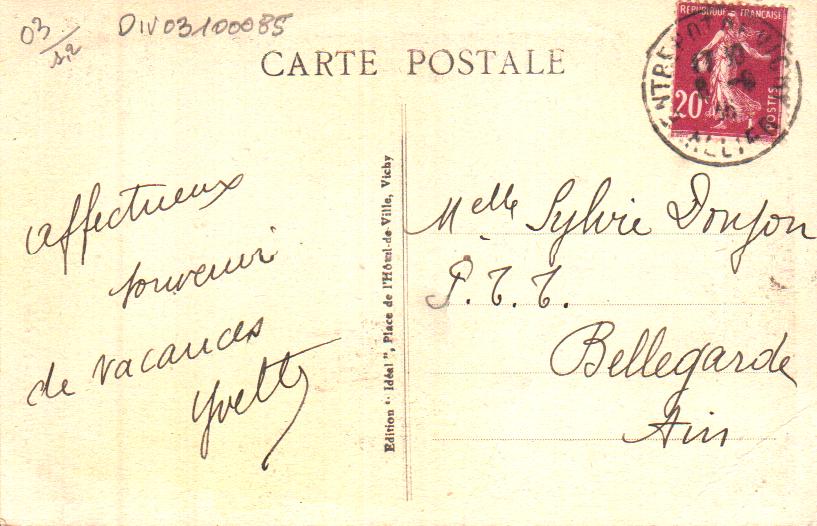 03/
DIV03100085
CARTE POSTALE
REPUBLIQUE FRANÇAISE
20
POSTES
ALLIER
affectueux
souvenir
de vacances
Yvette
Edition "Idéal", Place de l'Hôtel-de-Ville, Vichy
Melle Sylvie Donjon
P.T.T.
Bellegarde
Ain